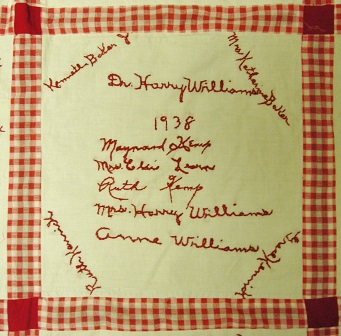 Kenneth Baker Jr
Mrs Katherine Baker
Dr. Harry Williams
1938
Maynard Kemp
Mrs. Elsi
Ruth Kemp
Mrs. Harry Williams
Anne Williams
Ruth